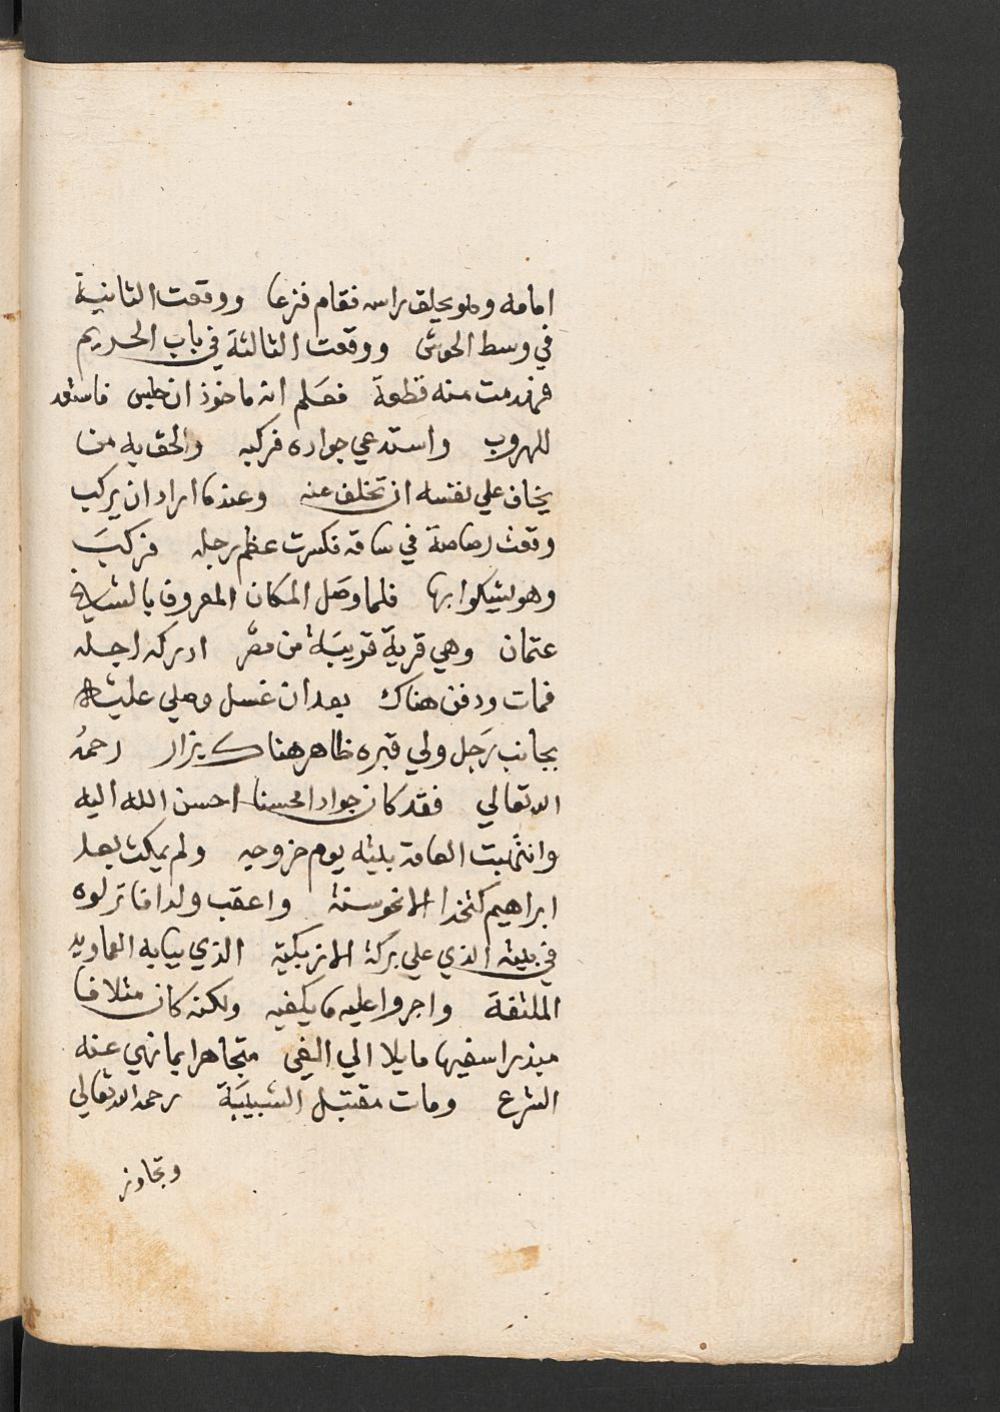 امامه وهو يحلق راسه فقام فزعا ووقعت الثانية
في وسط الحوش ووقعت الثالثة في باب الحريم
فهدمت منه قطعة فعلم انه ماخوذ ان جلس فاستعد
للهروب واستدعي جواده فركبه والحق به من
يخاف علي نفسه ان تخلف عنه وعندما اراد ان يركب
وقعت رصاصة في ساقه فكسرت عظم رجله فركب
وهو يشكوا بها فلما وصل المكان المعروف بالشيخ
عتمان وهي قرية قريبة من مصر ادركه اجله
فمات ودفن هناك بعد ان غسل وصلي عليه
بجانب رجل ولي قبره ظاهر هناك يزار رحمه
الله تعالي فقد كان جوادا محسنا احسن الله اليه
وانتهبت العامة بيته يوم خروجه ولم يمكث بعد
ابراهيم كتخدا الا نحو سنة واعقب ولدا فانزلوه
في بيته الذي علي بركة الازبكية الذي ببابه العواميد
الملتفة واجروا عليه ما يكفيه ولكنه كان متلافا
مبذرا سفيها مايلا الي الغي متجاهرا بما نهي عنه
الشرع ومات مقتبل الشبيبة رحمه الله تعالي
وتجاوز